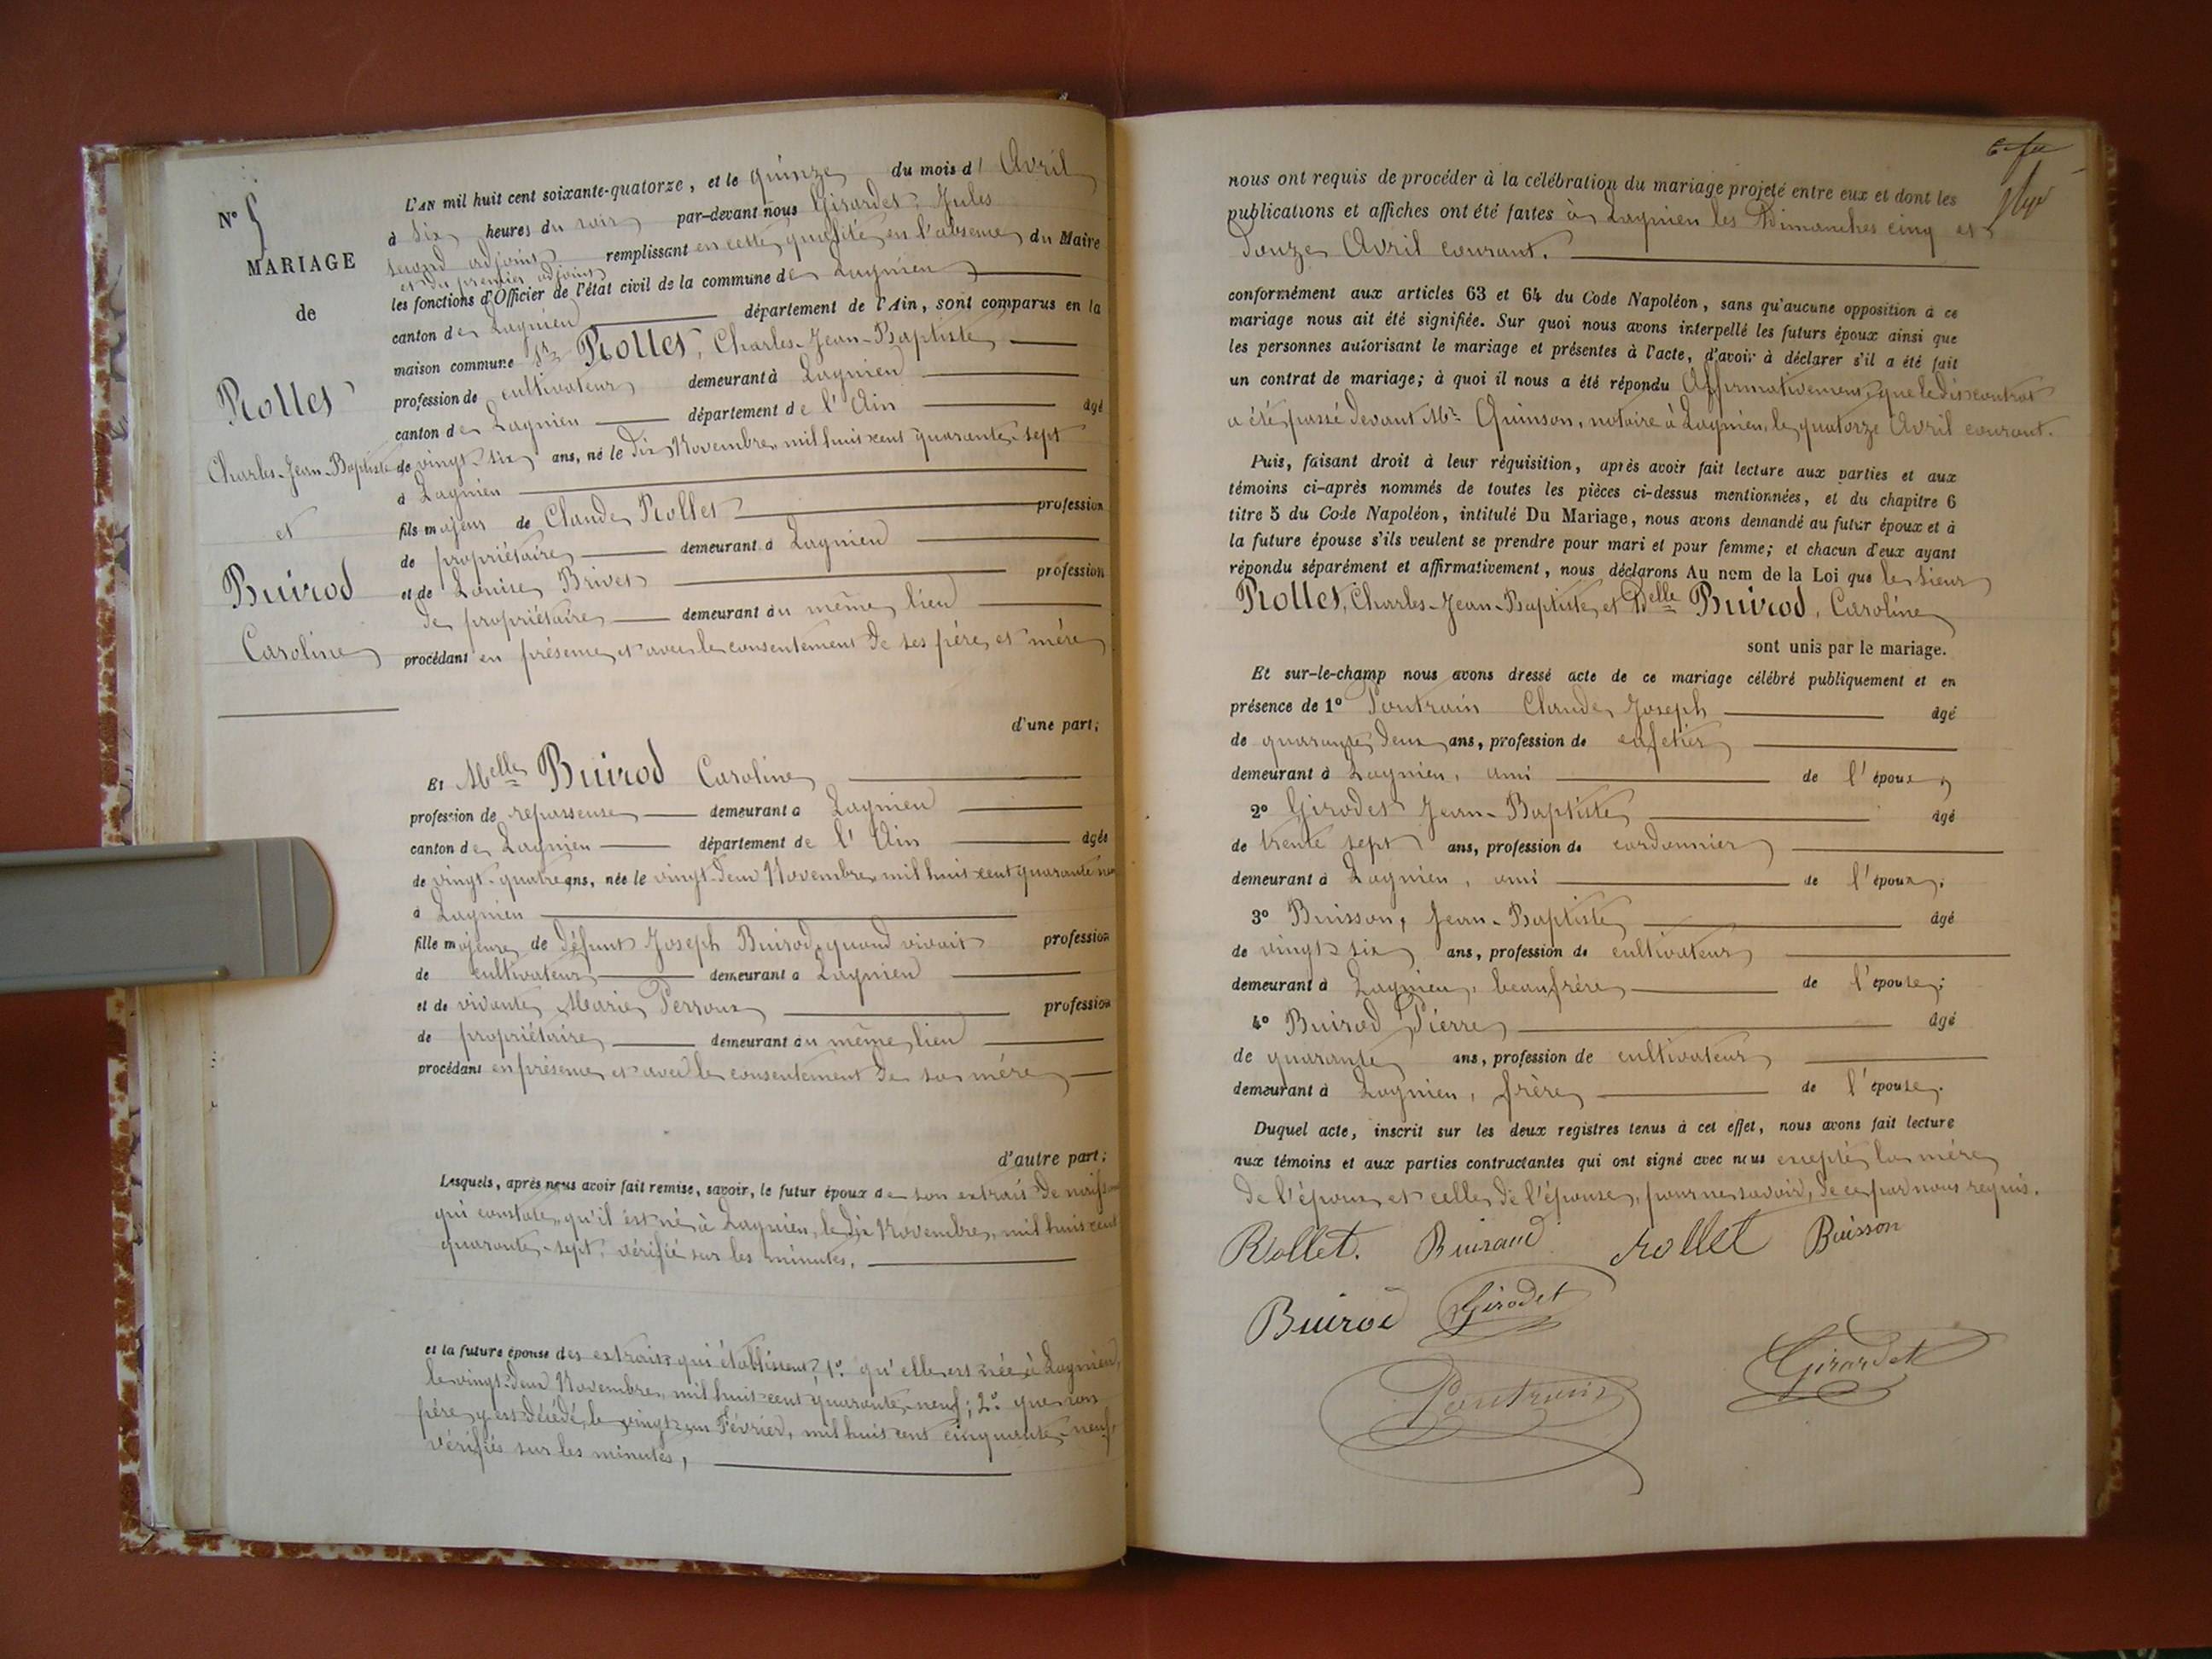 N° 5
MARIAGE
de
Rollet
Charles-Jean-Baptiste
et
Buirod
Caroline
L'AN mil huit cent soixante-quatorze, et le quinze du mois d' Avril
à six heures du soir par-devant nous Girardet Jules
second adjoint remplissant en cette qualité en l'absence du Maire
et du premier adjoint
les fonctions d'Officier de l'état civil de la commune de Lagnieu
canton de Lagnieu département de l'Ain, sont comparus en la
maison commune Sr Rollet, Charles-Jean-Baptiste
profession de cultivateur demeurant à Lagnieu
canton de Lagnieu département de l'Ain âgé
de vingt-six ans, né le dix Novembre mil huit cent quarante-sept
à Lagnieu
fils majeur de Claude Rollet profession
de propriétaire demeurant à Lagnieu
et de Louise Brivet profession
de propriétaire demeurant au même lieu
procédant en présence et avec le consentement de ses père et mère
d'une part;
Et Melle Buirod Caroline
profession de repasseuse demeurant à Lagnieu
canton de Lagnieu département de l'Ain âgée
de vingt-quatre ans, née le vingt-deux Novembre mil huit cent quarante neuf
à Lagnieu
fille majeure de défunt Joseph Buirod, quand vivait profession
de cultivateur demeurant à Lagnieu
et de vivante Marie Perroux profession
de propriétaire demeurant au même lieu
procédant en présence et avec le consentement de sa mère
d'autre part;
Lesquels, après nous avoir fait remise, savoir, le futur époux de son extrait de naissance
qui constate, qu'il est né à Lagnieu, le dix Novembre, mil huit cent
quarante-sept, vérifié sur les minutes.
et la future épouse des extraits qui établissent, 1° qu'elle est née à Lagnieu,
le vingt-deux Novembre, mil huit cent quarante-neuf; 2° que son
père y est décédé, le vingt-un Février, mil huit cent cinquante-neuf
vérifiés sur les minutes,
nous ont requis de procéder à la célébration du mariage projeté entre eux et dont les
publications et affiches ont été faites à Lagnieu les Dimanches cinq et
douze Avril courant.
conformément aux articles 63 et 64 du Code Napoléon, sans qu'aucune opposition à ce
mariage nous ait été signifiée. Sur quoi nous avons interpellé les futurs époux ainsi que
les personnes autorisant le mariage et présentes à l'acte, d'avoir à déclarer s'il a été fait
un contrat de mariage; à quoi il nous a été répondu Affirmativement, que ledit contrat
a été passé devant Me Quinson, notaire à Lagnieu, le quatorze Avril courant.
Puis, faisant droit à leur réquisition, après avoir fait lecture aux parties et aux
témoins ci-après nommés de toutes les pièces ci-dessus mentionnées, et du chapitre 6
titre 5 du Code Napoléon, intitulé Du Mariage, nous avons demandé au futur époux et à
la future épouse s'ils veulent se prendre pour mari et pour femme; et chacun d'eux ayant
répondu séparément et affirmativement, nous déclarons Au nom de la Loi que le sieur
Rollet, Charles-Jean-Baptiste, et Delle Buirod, Caroline
sont unis par le mariage.
Et sur-le-champ nous avons dressé acte de ce mariage célébré publiquement et en
présence de 1° Poutrain Claude Joseph âgé
de quarante deux ans, profession de cafetier
demeurant à Lagnieu, ami de l'époux,
2° Girodet Jean-Baptiste âgé
de trente sept ans, profession de cordonnier
demeurant à Lagnieu, ami de l'époux;
3° Buisson, Jean-Baptiste âgé
de vingt-six ans, profession de cultivateur
demeurant à Lagnieu, beau-frère de l'épouse;
4° Buirod Pierre âgé
de quarante ans, profession de cultivateur
demeurant à Lagnieu, frère de l'épouse.
Duquel acte, inscrit sur les deux registres tenus à cet effet, nous avons fait lecture
aux témoins et aux parties contractantes qui ont signé avec nous excepté la mère
de l'époux et celle de l'épouse, pour ne savoir, de ce par nous requis.
Rollet. Buiraud rollet Buisson
Buirod Girodet
Poutrain Girardet